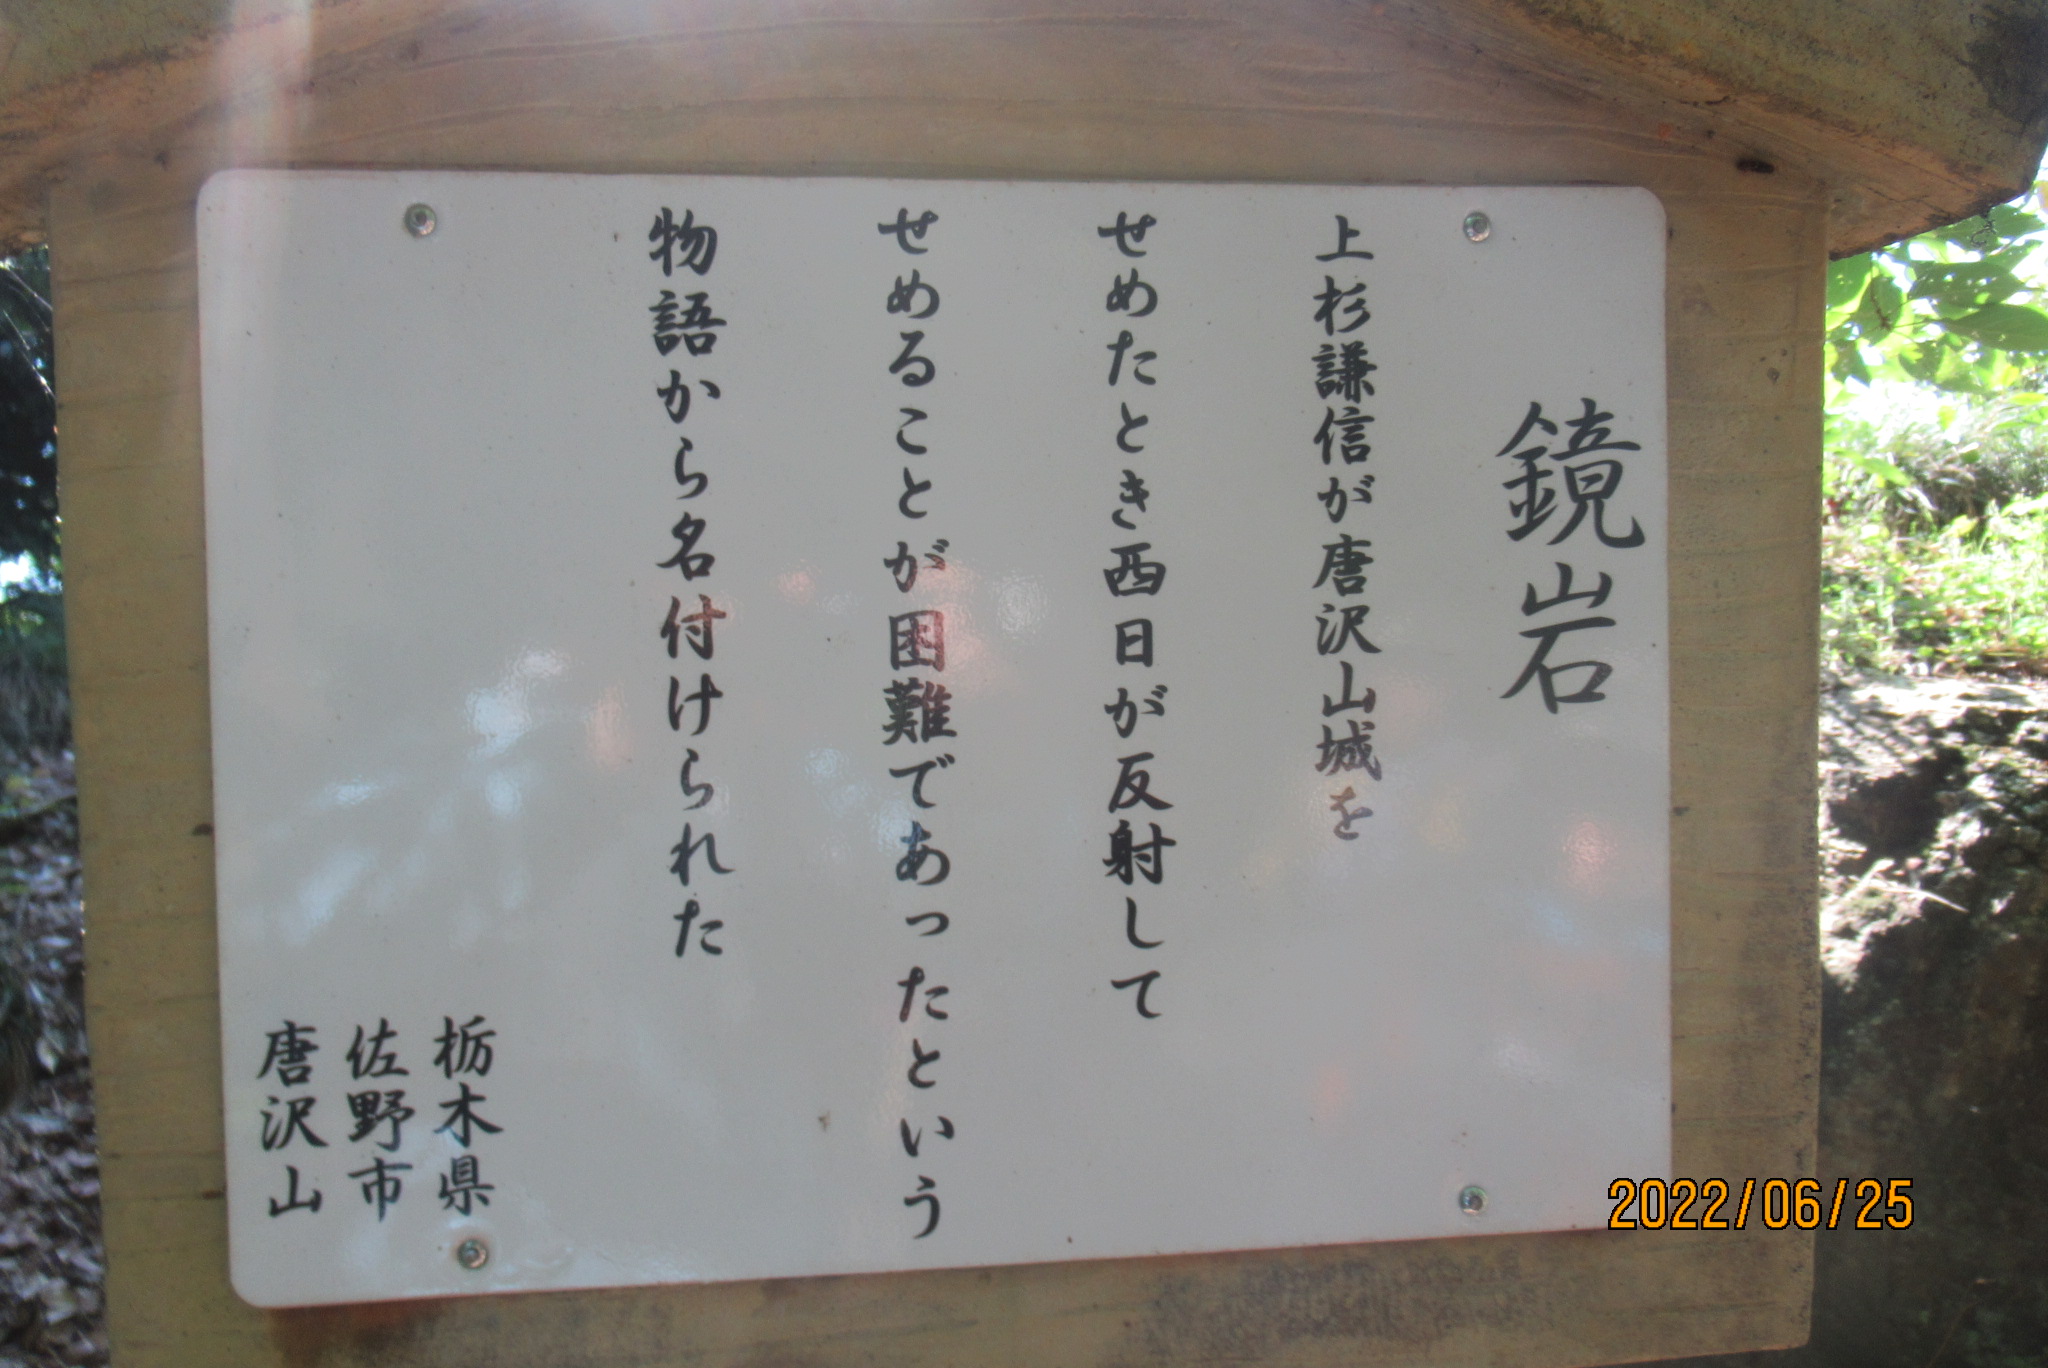 鏡岩
上杉謙信が唐沢山城を
せめたとき西日が反射して
せめることが困難であったという
物語から名付けられた
栃木県
佐野市
唐沢山
2022/06/25